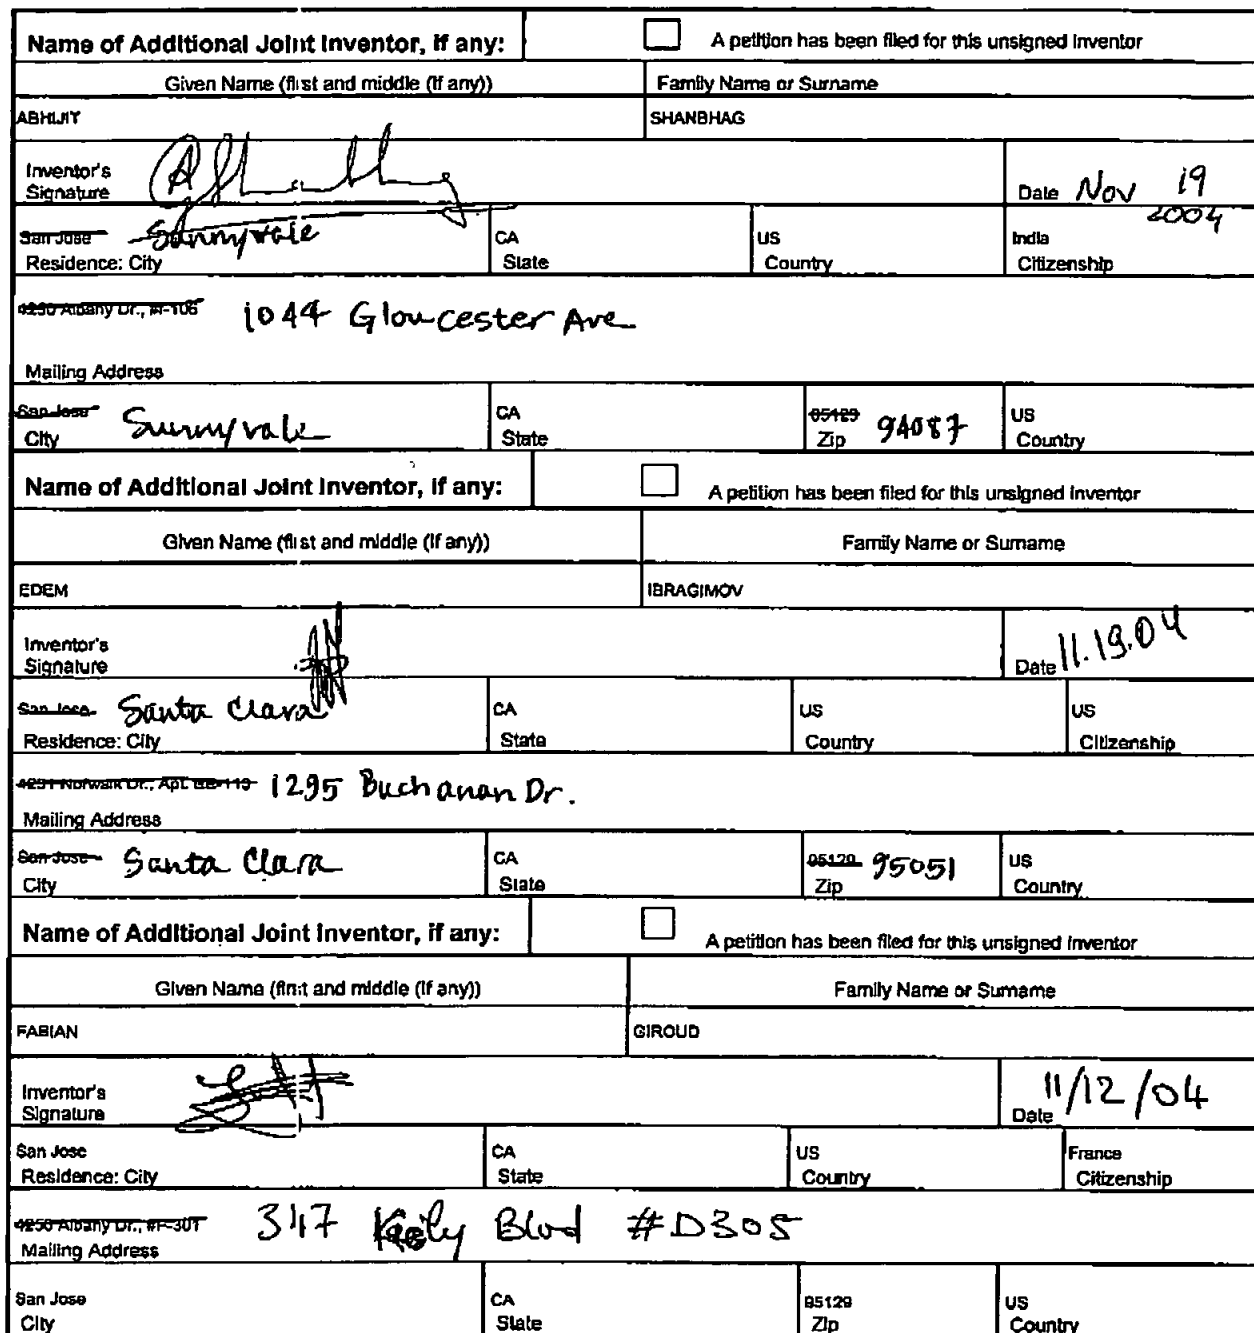 Name of Additional Joint Inventor, if any: A petition has been filed for this unsigned inventor
Given Name (first and middle (if any)) Family Name or Surname
ABHIJIT SHANBHAG
Inventor's
Signature Date Nov 19
2004
San Jose Sunnyvale CA US India
Residence: City State Country Citizenship
4250 Albany Dr., #F-106 1044 Gloucester Ave
Mailing Address
San Jose Sunnyvale CA 95129 94087 US
City State Zip Country
Name of Additional Joint Inventor, if any: A petition has been filed for this unsigned inventor
Given Name (first and middle (if any)) Family Name or Surname
EDEM IBRAGIMOV
Inventor's
Signature Date 11.19.04
San Jose Santa Clara CA US US
Residence: City State Country Citizenship
Norwalk Dr., Apt. 1295 Buchanan Dr.
Mailing Address
San Jose Santa Clara CA 95129 95051 US
City State Zip Country
Name of Additional Joint Inventor, if any: A petition has been filed for this unsigned inventor
Given Name (first and middle (if any)) Family Name or Surname
FABIAN GIROUD
Inventor's
Signature Date 11/12/04
San Jose CA US France
Residence: City State Country Citizenship
4250 Albany Dr., #F-301 347 Kiely Blvd #D305
Mailing Address
San Jose CA 95129 US
City State Zip Country